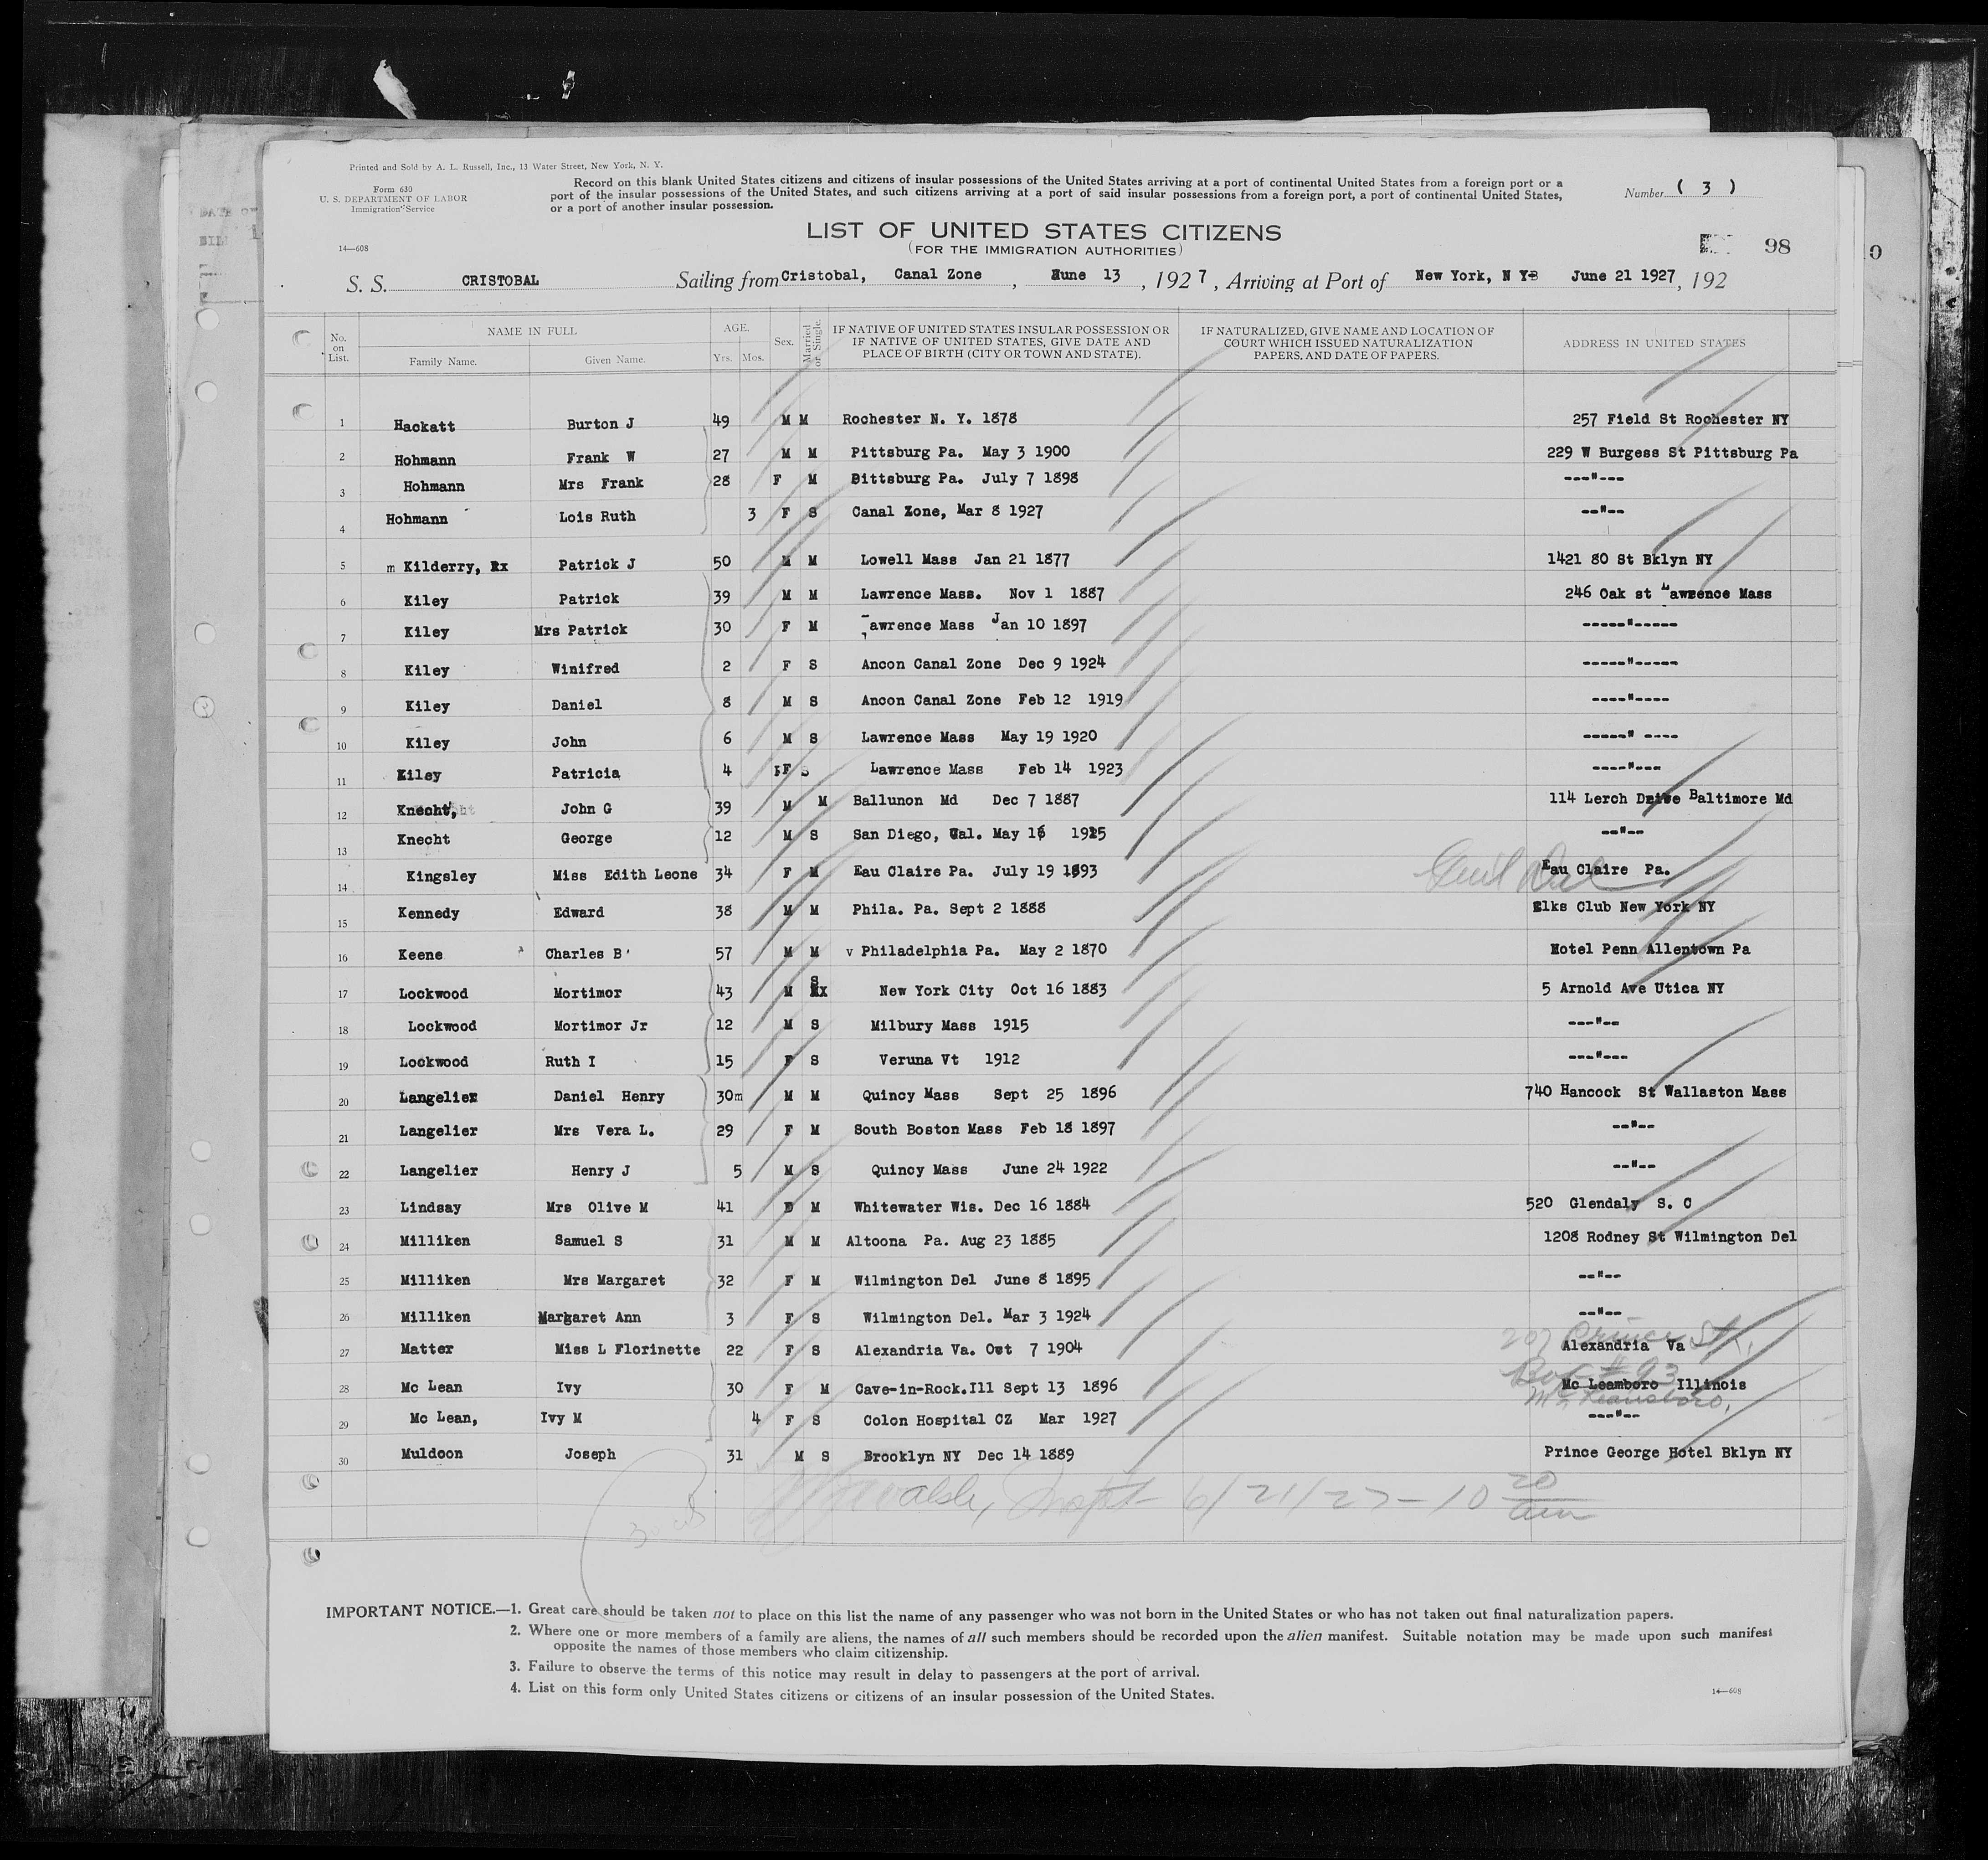 Printed and Sold by A. L. Russell, Inc., 13 Water Street, New York, N. Y.
Form 630
U. S. DEPARTMENT OF LABOR
Immigration Service
14—608
Record on this blank United States citizens and citizens of insular possessions of the United States arriving at a port of continental United States from a foreign port or a
port of the insular possessions of the United States, and such citizens arriving at a port of said insular possessions from a foreign port, a port of continental United States,
or a port of another insular possession.
Number ( 3 )
LIST OF UNITED STATES CITIZENS
(FOR THE IMMIGRATION AUTHORITIES)
98
S. S. CRISTOBAL Sailing from Cristobal, Canal Zone , June 13 , 1927 , Arriving at Port of New York, N Y June 21 1927 , 192
No. on List. NAME IN FULL Family Name. Given Name. AGE. Yrs. Mos. Sex. Married or Single. IF NATIVE OF UNITED STATES INSULAR POSSESSION OR IF NATIVE OF UNITED STATES, GIVE DATE AND PLACE OF BIRTH (CITY OR TOWN AND STATE). IF NATURALIZED, GIVE NAME AND LOCATION OF COURT WHICH ISSUED NATURALIZATION PAPERS, AND DATE OF PAPERS. ADDRESS IN UNITED STATES
1 Hackatt Burton J 49 M M Rochester N. Y. 1878 257 Field St Rochester NY
2 Hohmann Frank W 27 M M Pittsburg Pa. May 3 1900 229 W Burgess St Pittsburg Pa
3 Hohmann Mrs Frank 28 F M Pittsburg Pa. July 7 1898 ---"---
4 Hohmann Lois Ruth 3 F S Canal Zone, Mar 8 1927 --"--
5 m Kilderry, Patrick J 50 M M Lowell Mass Jan 21 1877 1421 80 St Bklyn NY
6 Kiley Patrick 39 M M Lawrence Mass. Nov 1 1887 246 Oak st Lawrence Mass
7 Kiley Mrs Patrick 30 F M Lawrence Mass Jan 10 1897 -----"-----
8 Kiley Winifred 2 F S Ancon Canal Zone Dec 9 1924 -----"-----
9 Kiley Daniel 8 M S Ancon Canal Zone Feb 12 1919 ----"----
10 Kiley John 6 M S Lawrence Mass May 19 1920 -----" ----
11 Kiley Patricia 4 F S Lawrence Mass Feb 14 1923 ----"---
12 Knecht, John G 39 M M Ballunon Md Dec 7 1887 114 Lerch Drive Baltimore Md
13 Knecht George 12 M S San Diego, Cal. May 16 1915 --"--
14 Kingsley Miss Edith Leone 34 F M Eau Claire Pa. July 19 1893 Eau Claire Pa.
15 Kennedy Edward 38 M M Phila. Pa. Sept 2 1888 Elks Club New York NY
16 Keene Charles B 57 M M v Philadelphia Pa. May 2 1870 Hotel Penn Allentown Pa
17 Lockwood Mortimor 43 M S New York City Oct 16 1883 5 Arnold Ave Utica NY
18 Lockwood Mortimor Jr 12 M S Milbury Mass 1915 ---"--
19 Lockwood Ruth I 15 F S Veruna Vt 1912 ---"---
20 Langelier Daniel Henry 30m M M Quincy Mass Sept 25 1896 740 Hancock St Wallaston Mass
21 Langelier Mrs Vera L. 29 F M South Boston Mass Feb 18 1897 --"--
22 Langelier Henry J 5 M S Quincy Mass June 24 1922 --"--
23 Lindsay Mrs Olive M 41 M Whitewater Wis. Dec 16 1884 520 Glendaly S. C
24 Milliken Samuel S 31 M M Altoona Pa. Aug 23 1885 1208 Rodney St Wilmington Del
25 Milliken Mrs Margaret 32 F M Wilmington Del June 8 1895 --"--
26 Milliken Margaret Ann 3 F S Wilmington Del. Mar 3 1924 --"--
207 Prince St.
27 Matter Miss L Florinette 22 F S Alexandria Va. Oct 7 1904 Alexandria Va
Box # 93
28 Mc Lean Ivy 30 F M Cave-in-Rock.Ill Sept 13 1896 Mc Leamboro Illinois
Mc Leansboro,
29 Mc Lean, Ivy M 4 F S Colon Hospital CZ Mar 1927 ---"--
30 Muldoon Joseph 31 M S Brooklyn NY Dec 14 1889 Prince George Hotel Bklyn NY
Walsh, Inspt - 6/21/27 - 10 20 am
IMPORTANT NOTICE.—1. Great care should be taken not to place on this list the name of any passenger who was not born in the United States or who has not taken out final naturalization papers.
2. Where one or more members of a family are aliens, the names of all such members should be recorded upon the alien manifest. Suitable notation may be made upon such manifest
opposite the names of those members who claim citizenship.
3. Failure to observe the terms of this notice may result in delay to passengers at the port of arrival.
4. List on this form only United States citizens or citizens of an insular possession of the United States.
14—608